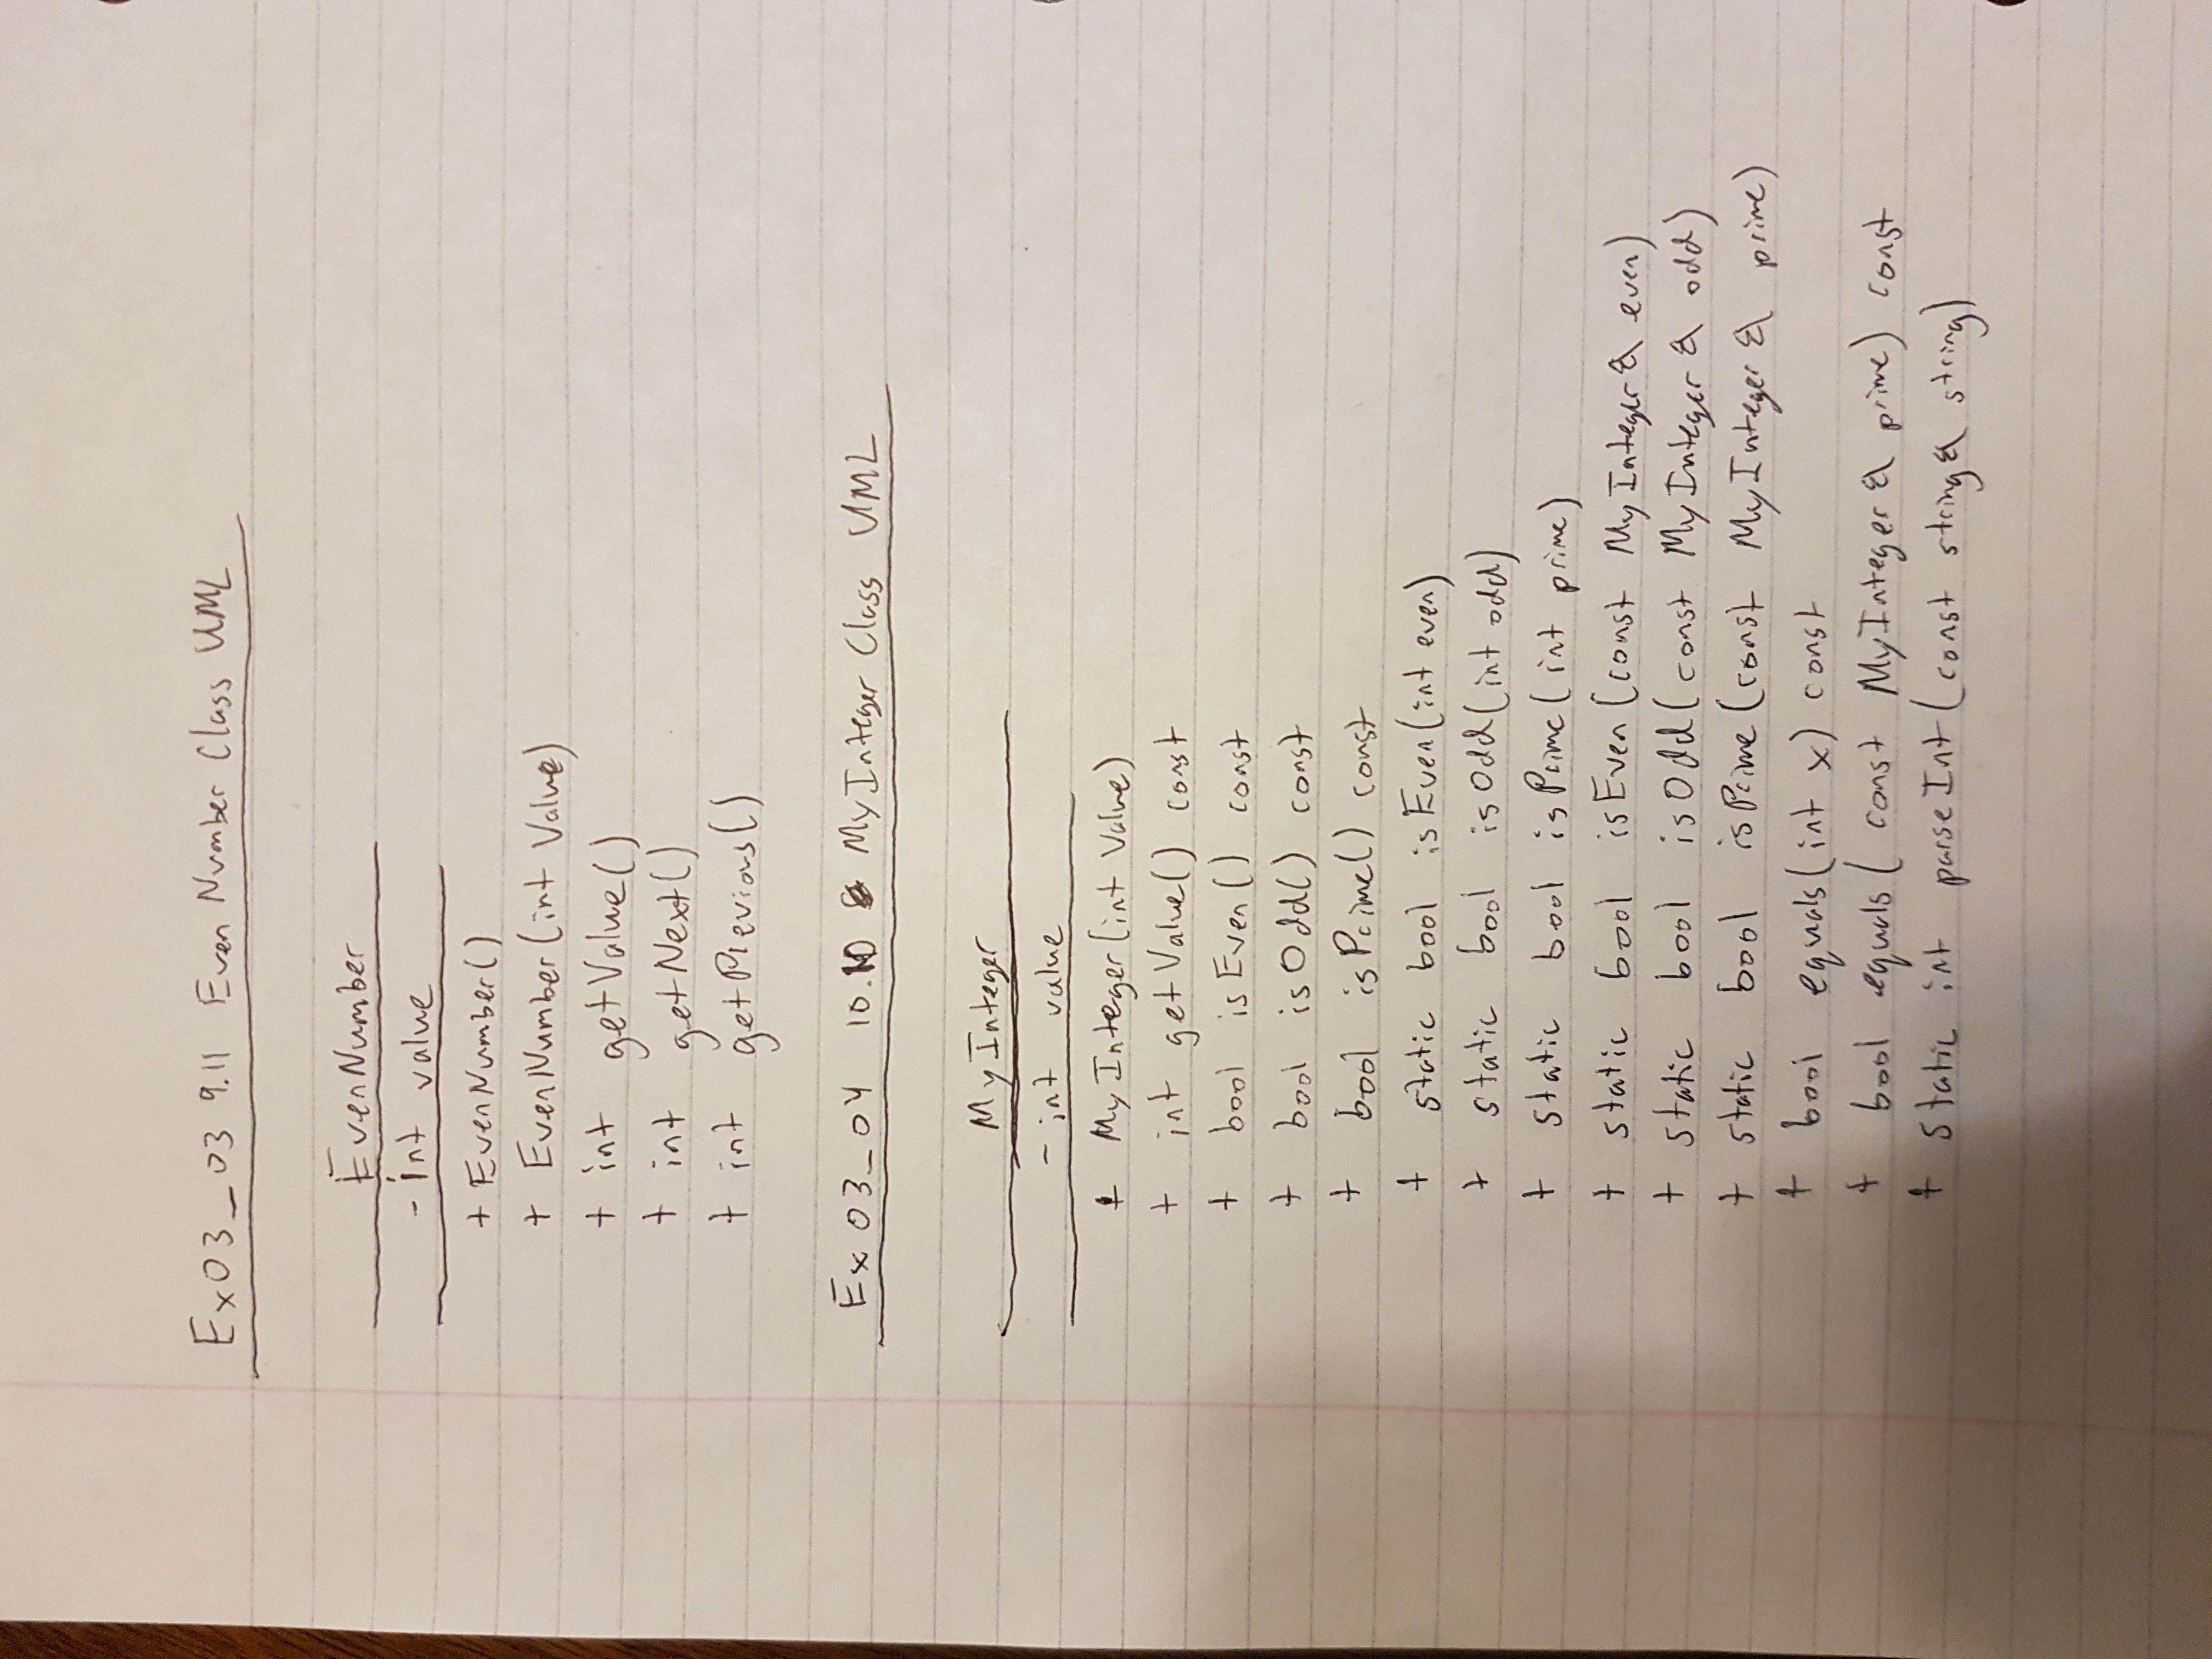 Ex03_03 9.11 Even Number Class UML
EvenNumber
- int value
+ EvenNumber()
+ EvenNumber(int Value)
+ int getValue()
+ int getNext()
+ int getPrevious()
Ex 03_04 10.10 MyInteger Class UML
MyInteger
- int value
+ MyInteger(int Value)
+ int getValue() const
+ bool isEven() const
+ bool isOdd() const
+ bool isPrime() const
+ static bool isEven(int even)
+ static bool isOdd(int odd)
+ static bool isPrime(int prime)
+ static bool isEven(const MyInteger & even)
+ static bool isOdd(const MyInteger & odd)
+ static bool isPrime(const MyInteger & prime)
+ bool equals(int x) const
+ bool equals(const MyInteger & prime) const
+ static int parseInt(const string & string)